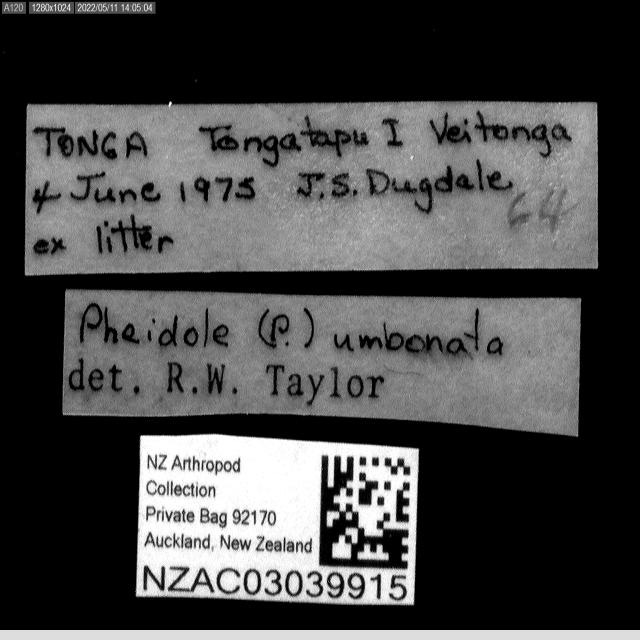 A120 1280x1024 2022/05/11 14:05:04
TONGA Tongatapu I Veitonga
4 June 1975 J.S. Dugdale
64
ex litter
Pheidole (P.) umbonata
det. R.W. Taylor
NZ Arthropod
Collection
Private Bag 92170
Auckland, New Zealand
NZAC03039915